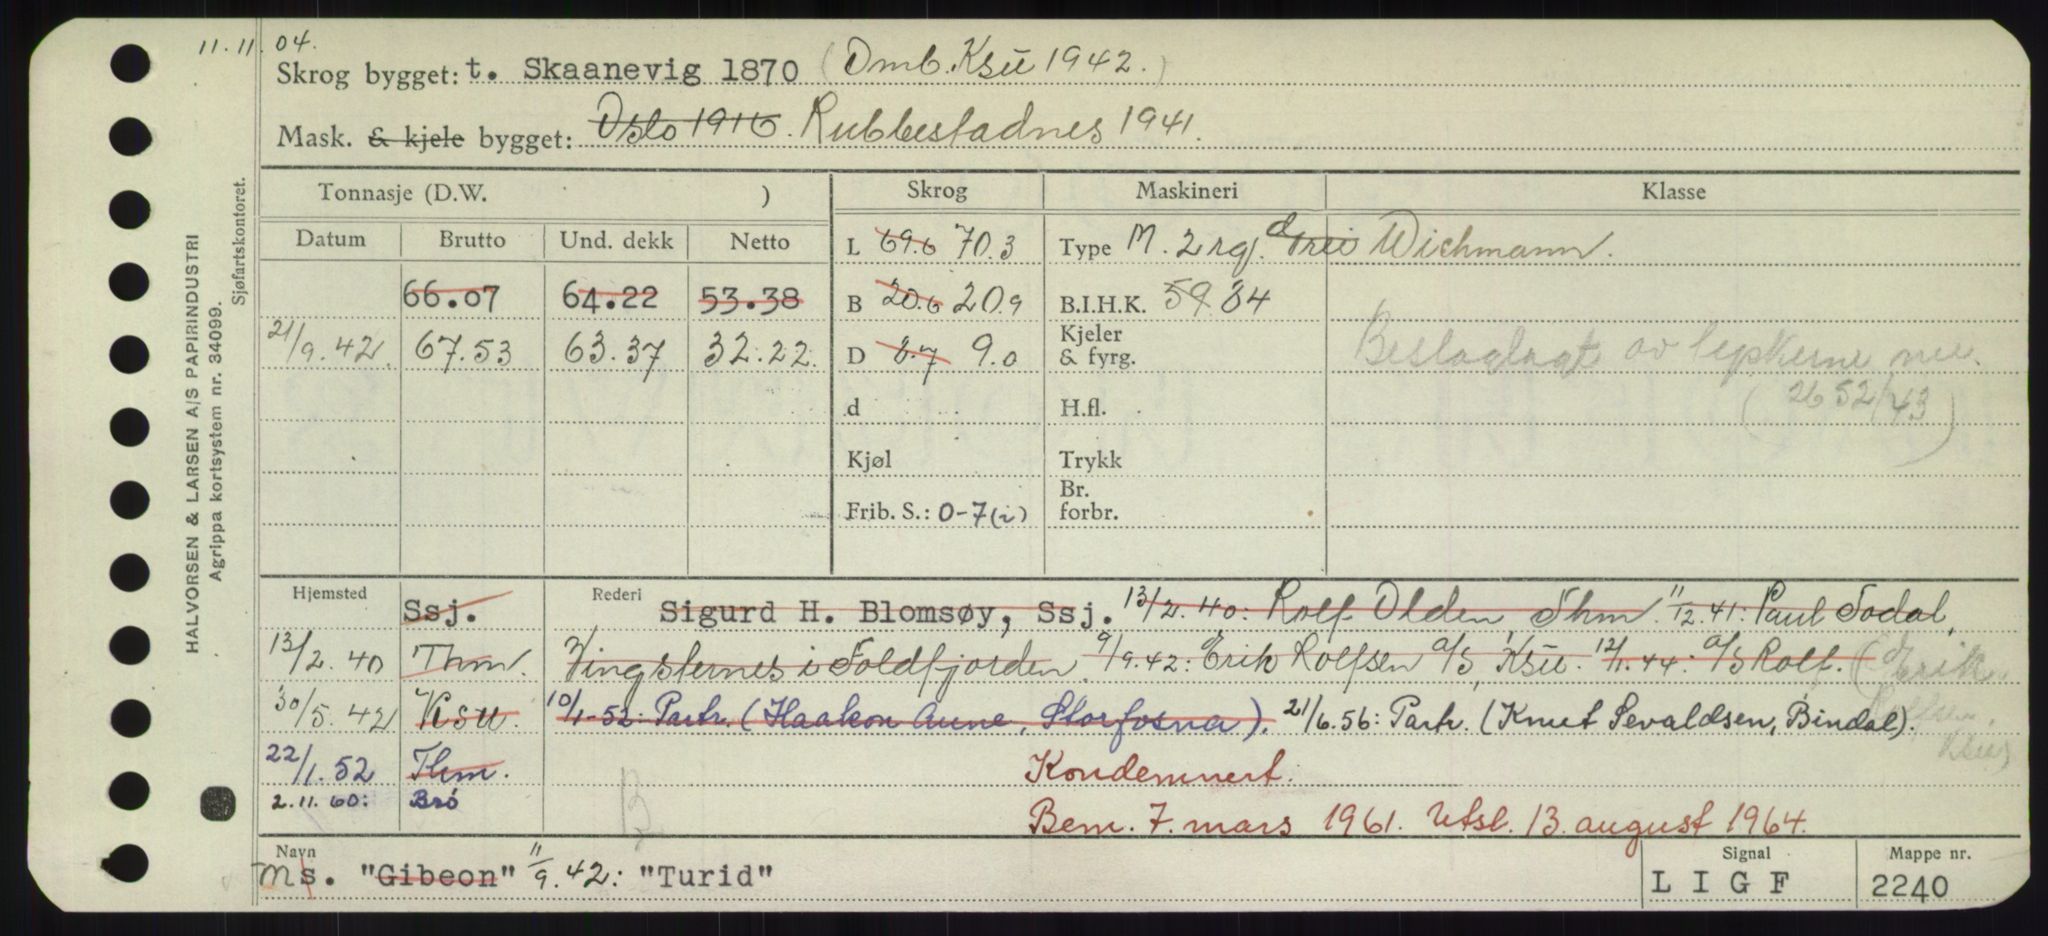 11.11.04.
Skrog bygget: t. Skaanevig 1870 (Omb. Ksü 1942.)
Mask. & kjele bygget: Oslo 1916. Rubbestadnes 1941.
Tonnasje (D.W. ) Skrog Maskineri Klasse
Datum Brutto Und. dekk Netto L 69.6 70.3 Type M. 2 rg. Wichmann.
66.07 64.22 53.38 B 20.6 20.9 B.I.H.K. 59 84
21/9.42. 67.53 63.37 32.22. D 8.7 9.0 Kjeler & fyrg. Beslaglagt av
d H.fl. (2652/43)
Kjøl Trykk
Frib. S.: 0-7(i) Br. forbr.
Hjemsted Ssj. Rederi Sigurd H. Blomsøy, Ssj. 13/2.40: Rolf Olden Thm. 11/12.41: Paul Sodal,
13/2.40 Thm. Vingsternes i Foldfjorden. 9/9.42: Erik Rolfsen A/S, Ksü. 12/1.44: A/S Rolf. (Erik Rolfsen,
30/5.42 Ksü. 10/1-52: Partr. (Haakon Aune, Storfosna). 21/6.56: Partr. (Knut Sevaldsen, Bindal).
22/1.52 Thm. Kondemnert.
2.11.60: Brö Bem. 7. mars 1961. Utsl. 13. august 1964.
Navn
Ms. "Gibeon" 11/9.42: "Turid"
Signal
LIGF
Mappe nr.
2240
HALVORSEN & LARSEN A/S PAPIRINDUSTRI
Agrippa kortsystem nr. 34099.
Sjøfartskontoret.